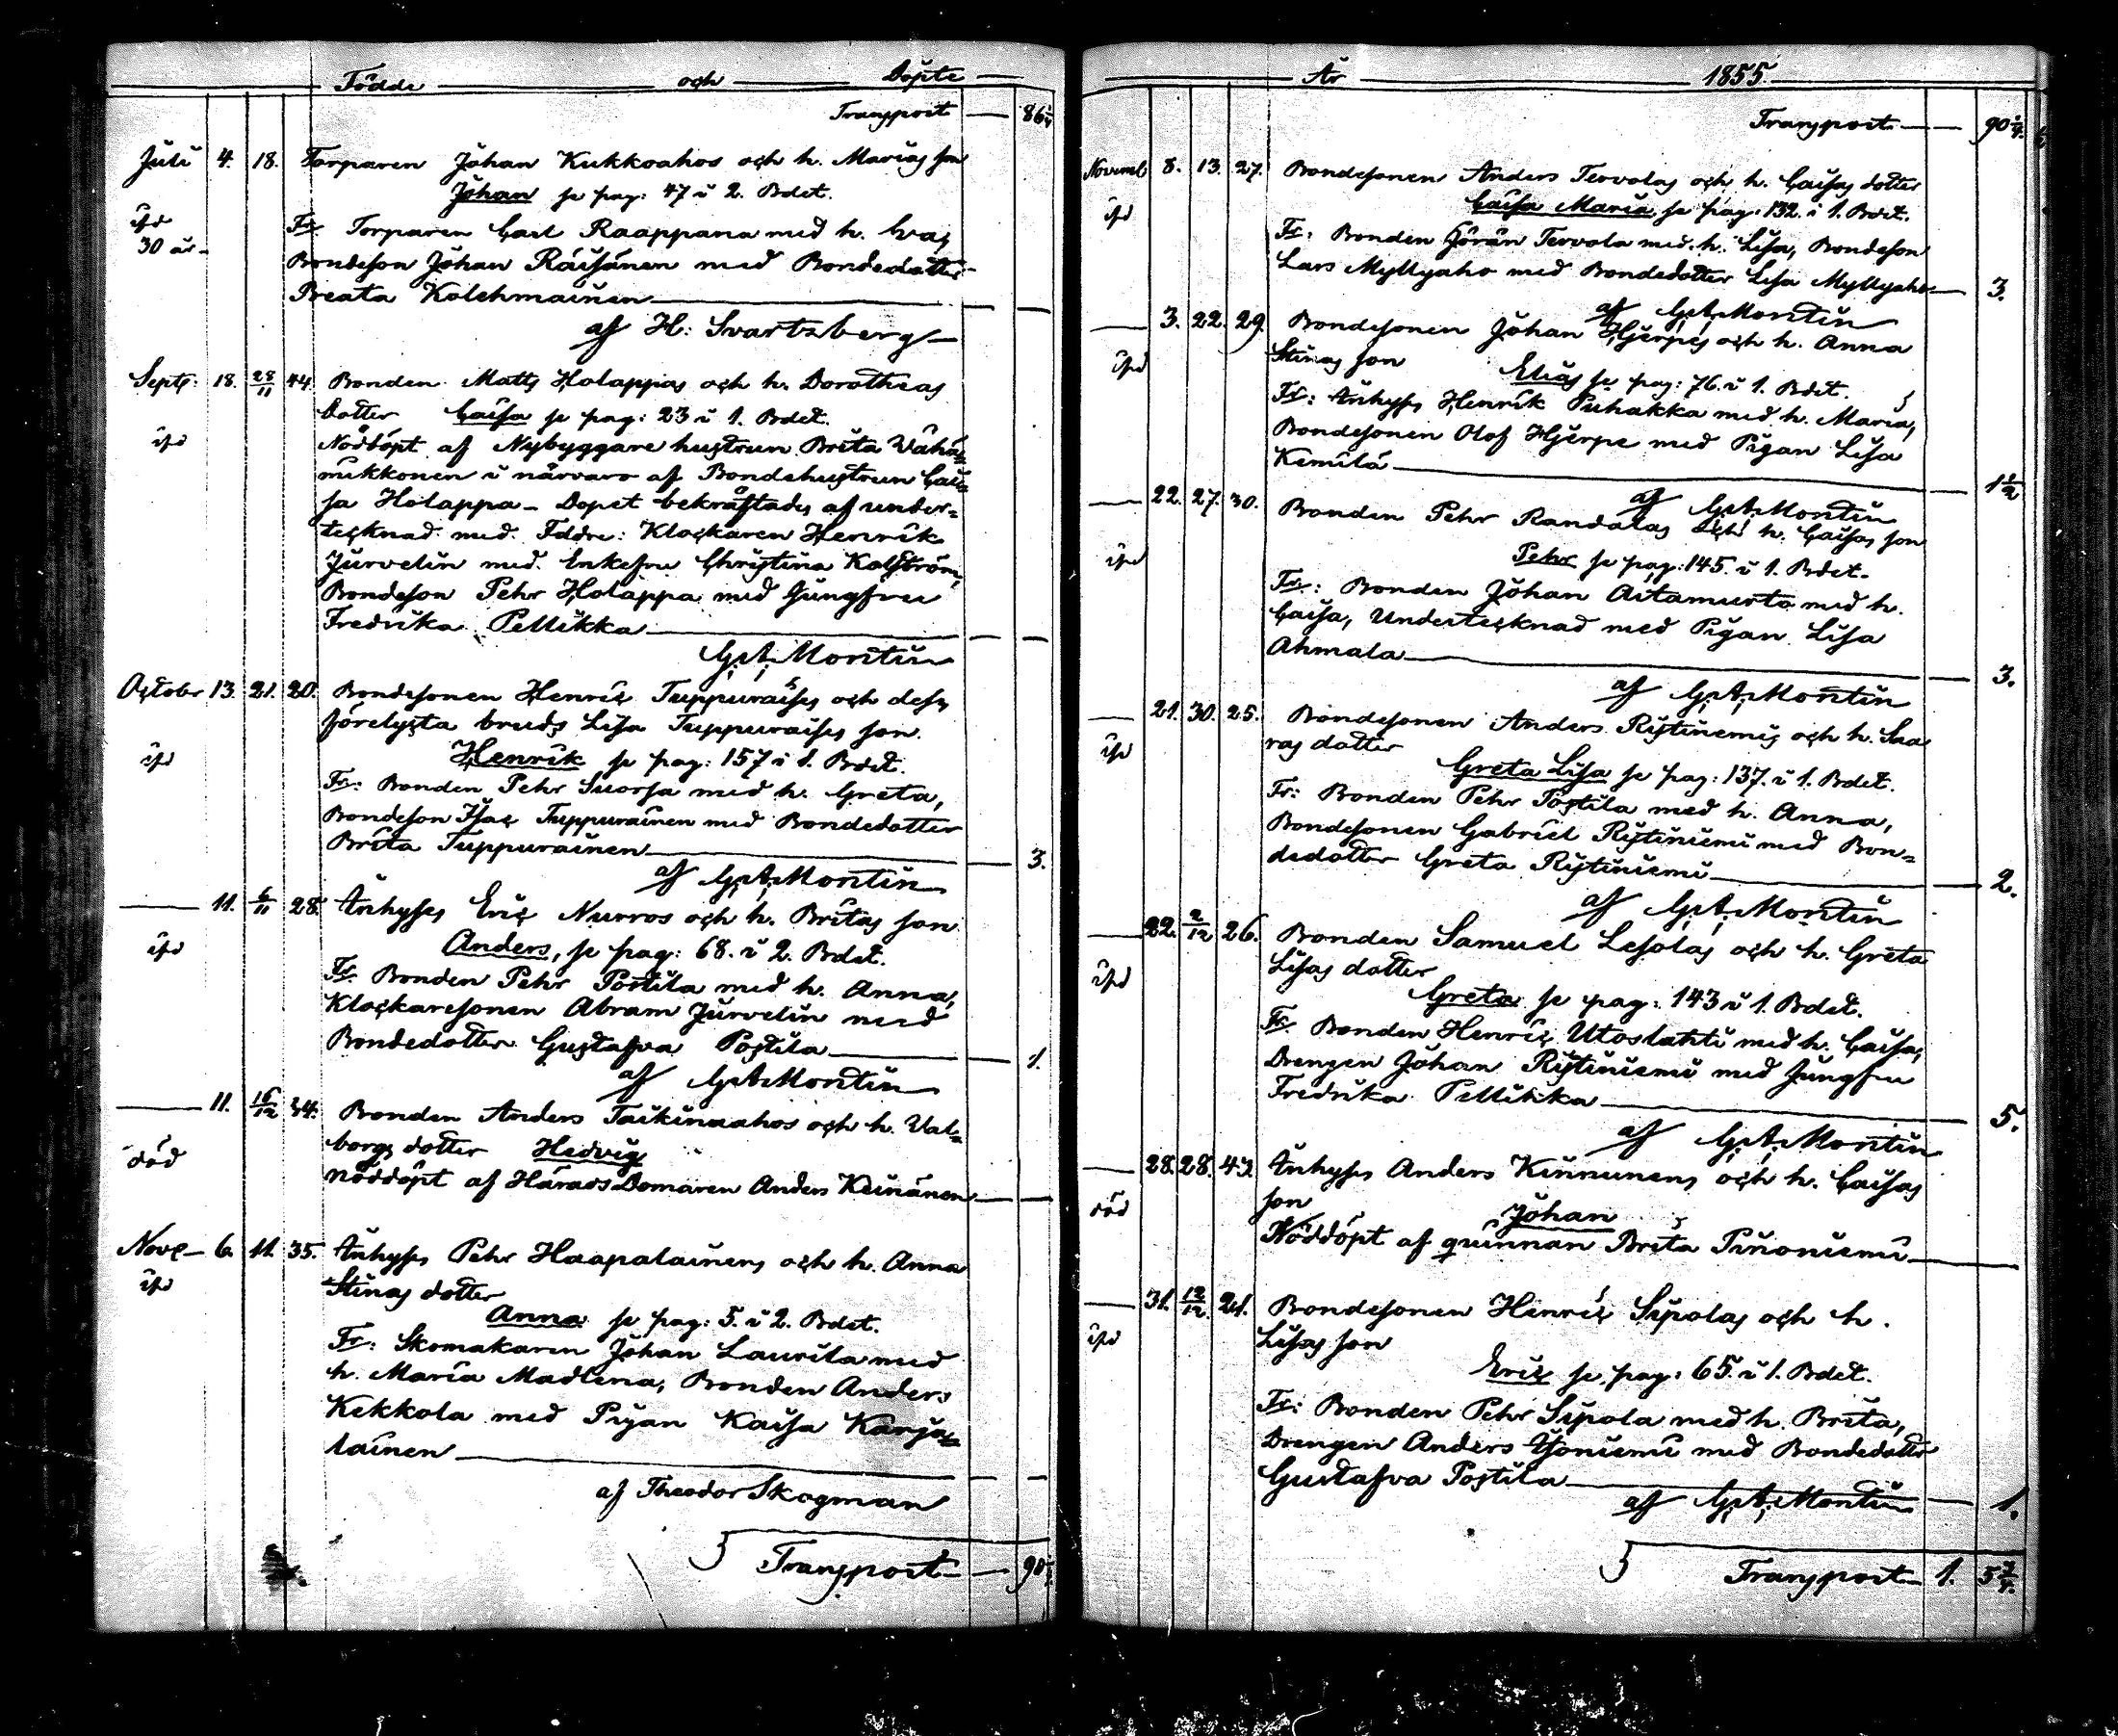 Födde och Döpte
Transport — 86¼
Juli 4. 18. Torparen Johan Kukkoahos och h. Marias son
Johan se pag: 47 i 2. Bdet.
ipd
30 år
Fr Torparen Carl Raappana med h. Eva,
Bondeson Johan Räisänen med Bondedotter
Beata Kolehmainen —
af H: Svartzberg
Septr: 18. 28/11 44. Bonden Matts Holappas och h. Dorotheas
ipd
dotter Caisa se pag: 23 i 1. Bdet.
Nöddöpt af Nybyggare hustrun Brita Wähä=
mikkonen i närvaro af Bondehustrun Cai=
sa Holappa – Dopet bekräftades af under=
tecknad med Fddre: Klockaren Henrik
Jurvelin med Enkefru Christina Kalström,
Bondeson Pehr Holappa med Jungfru
Fredrika Pellikka —
G.A. Montin
October 13. 21. 20. Bondesonen Henric Tuppuraises och dess
ipd
förelysta bruds Lisa Tuppuraises son
Henrik se pag: 157 i 1. Bdet.
Fr: Bonden Pehr Suorsa med h. Greta,
Bondeson Isac Tuppurainen med Bondedotter
Brita Tuppurainen — 3.
af G.A. Montin
— 11. 6/11 28. Inhyses Eric Nurros och h. Britas son
ipd
Anders, se pag: 68. i 2. Bdet.
Fr. Bonden Pehr Postila med h. Anna,
Klockaresonen Abram Jurvelin med
Bondedotter Gustafva Postila — 1.
af G.A. Montin
— 11. 16/12 34. Bonden Anders Taikinaahos och h. Val=
död
borgs dotter Hedvig
nöddöpt af HäradsDomaren Anders Keinänen —
Nov — 6. 11. 35. Inhyses Pehr Haapalainens och h. Anna
ipd
Stinas dotter
Anna se pag: 5. i 2. Bdet.
Fr: Skomakaren Johan Laurila med
h. Maria Madlena, Bonden Anders
Kekkola med Pigan Kaisa Karja=
lainen —
af Theodor Skogman
Transport — 90
År 1855
Transport — 90¼.
Novemb 8. 13. 27. Bondesonen Anders Tervolas och h. Caisas dotter
ipd
Caisa Maria se pag: 132. i 1. Bdet.
Fr: Bonden Jöran Tervola med h. Lisa, Bondeson
Lars Myllyaho med Bondedotter Lisa Myllyaho — 3.
af G.A. Montin
— 3. 22. 29. Bondesonen Johan Hjerpes och h. Anna
ipd
Stinas son
Elias se pag: 76. i 1. Bdet.
Fr: Inhyses Henrik Puhakka med h. Maria,
Bondesonen Olof Hjerpe med Pigan Lisa
Kemilä — 1½
af G.A. Montin
— 22. 27. 30. Bonden Pehr Randalas och h. Caisas son
ipd
Pehr se pag: 145. i 1. Bdet.
Fr: Bonden Johan Aitamurto med h.
Caisa, Undertecknad med Pigan Lisa
Ahmala — 3.
af G.A. Montin
— 21. 30. 25. Bondesonen Anders Rytiniemis och h. Saa
ipd
ras dotter
Greta Lisa se pag: 137. i 1. Bdet.
Fr: Bonden Pehr Postila med h. Anna,
Bondesonen Gabriel Rytiniemi med Bon=
dedotter Greta Rytiniemi — 2.
af G.A. Montin
— 22. 2/12 26. Bonden Samuel Lesolas och h. Greta
ipd
Lisas dotter
Greta se pag: 143 i 1. Bdet.
Fr. Bonden Henric Utoslahti med h. Caisa,
Drengen Johan Rytiniemi med Jungfru
Fredrika Pellikka — 5.
af G.A. Montin
— 28. 28. 43. Inhyses Anders Kinnunens och h. Caisas
död
son
Johan
Nöddöpt af quinnan Brita Piñoniemi —
— 31. 12/12 21. Bondesonen Henric Sipolas och h.
ipd
Lisas son
Eric se pag: 65. i 1. Bdet.
Fr: Bonden Pehr Sipola med h. Brita,
Drengen Anders Isoniemi med Bondedotter
Gustafva Postila — 1.
af G.A. Montin
Transport — 1. 5¾.